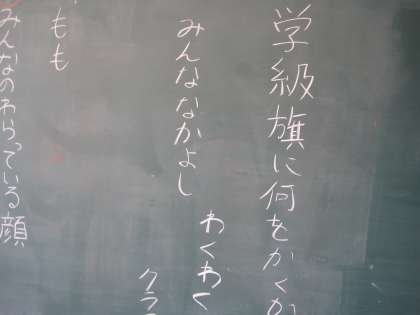 学級旗に何をかくか
みんななかよし
わくわく
クラ
もも
みんなのわらっている顔